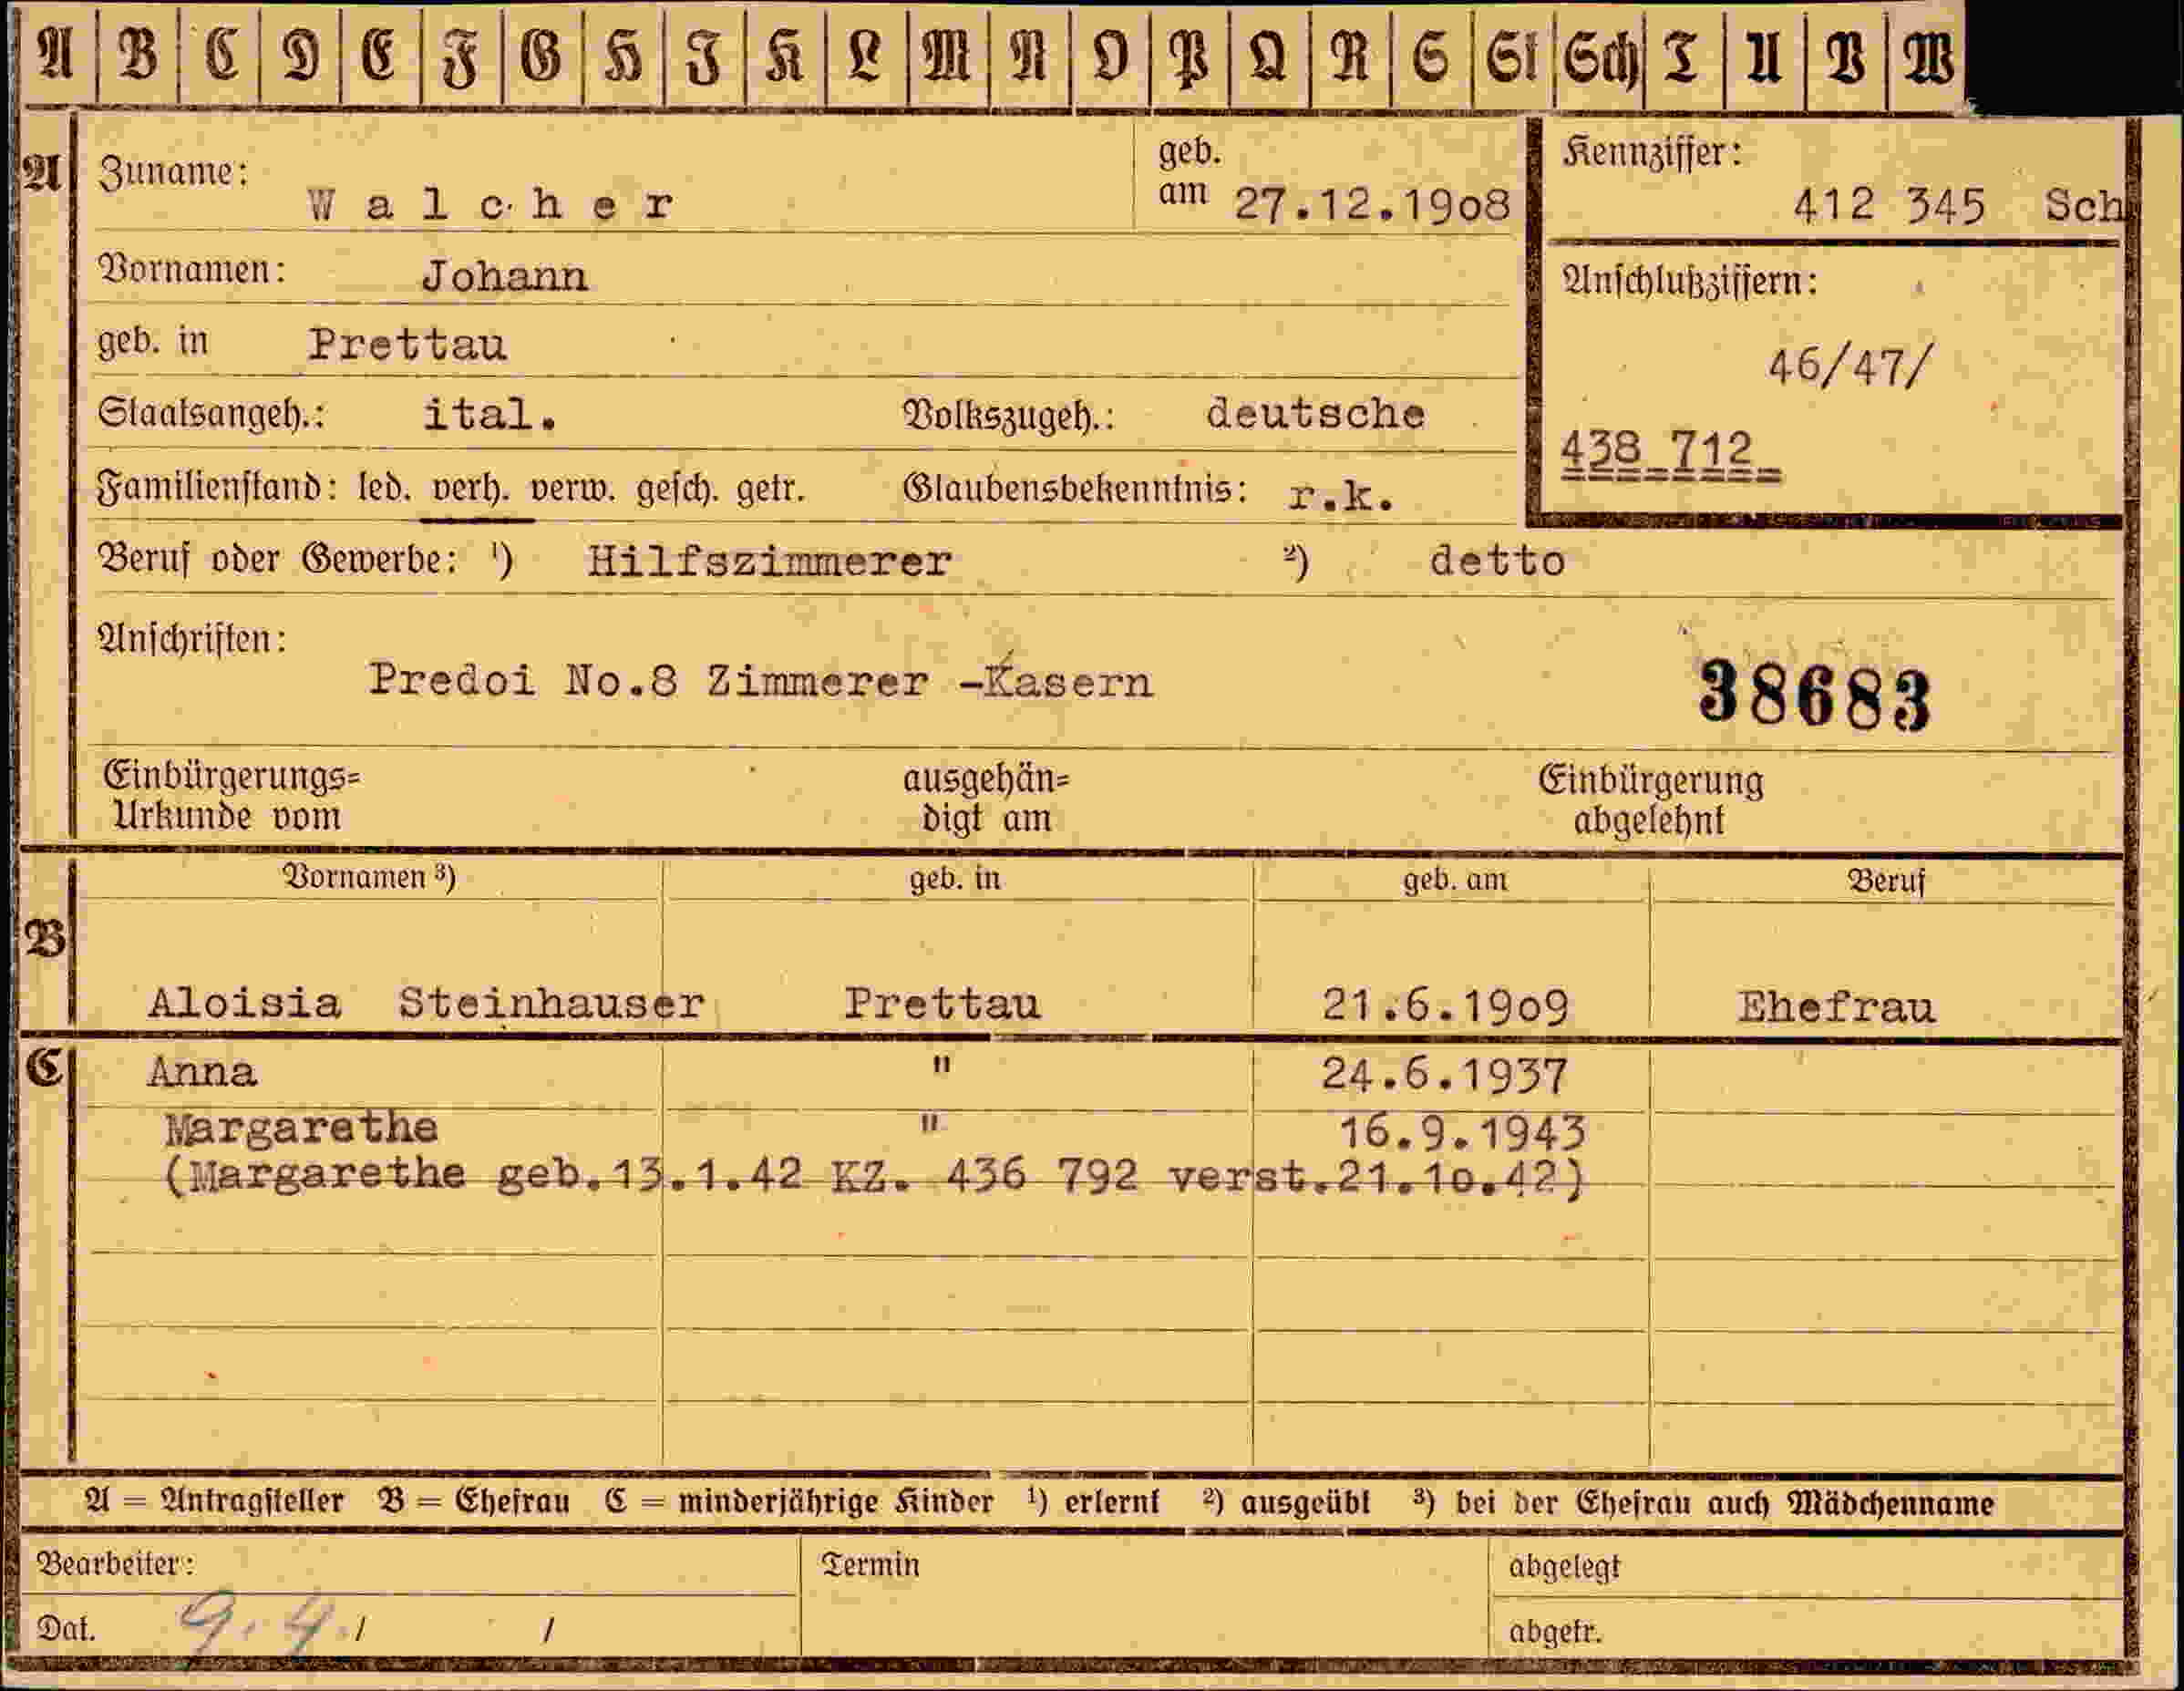 A B C D E F G H I K L M N O P Q R S St Sch T U V W
A Zuname: Walcher geb. am 27.12.1908 Kennziffer: 412 345 Sch
Vornamen: Johann Anschlußziffern:
geb. in Prettau 46/47/
Staatsangeh.: ital. Volkszugeh.: deutsche 438 712
Familienstand: led. verh. verw. gesch. getr. Glaubensbekenntnis: r.k.
Beruf oder Gewerbe: ¹) Hilfszimmerer ²) detto
Anschriften:
Predoi No.8 Zimmerer -Kasern 38683
Einbürgerungs= ausgehän= Einbürgerung
Urkunde vom digt am abgelehnt
Vornamen ³) geb. in geb. am Beruf
B
Aloisia Steinhauser Prettau 21.6.1909 Ehefrau
C Anna " 24.6.1937
Margarethe " 16.9.1943
(Margarethe geb.13.1.42 KZ. 436 792 verst.21.10.42)
A = Antragsteller B = Ehefrau C = minderjährige Kinder ¹) erlernt ²) ausgeübt ³) bei der Ehefrau auch Mädchenname
Bearbeiter: Termin abgelegt
Dat. 9.4./ / abgetr.